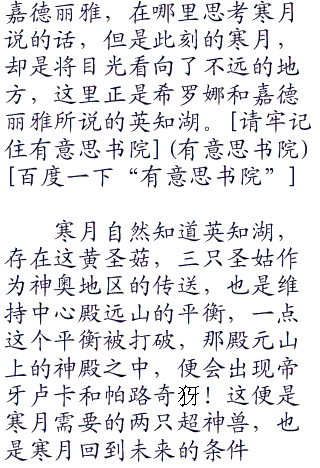 嘉德丽雅，在哪里思考寒月
说的话，但是此刻的寒月，
却是将目光看向了不远的地
方，这里正是希罗娜和嘉德
丽雅所说的英知湖。[请牢记
住有意思书院](有意思书院)
[百度一下“有意思书院”]
寒月自然知道英知湖，
存在这黄圣菇，三只圣姑作
为神奥地区的传送，也是维
持中心殿远山的平衡，一点
这个平衡被打破，那殿元山
上的神殿之中，便会出现帝
牙卢卡和帕路奇犽！这便是
寒月需要的两只超神兽，也
是寒月回到未来的条件